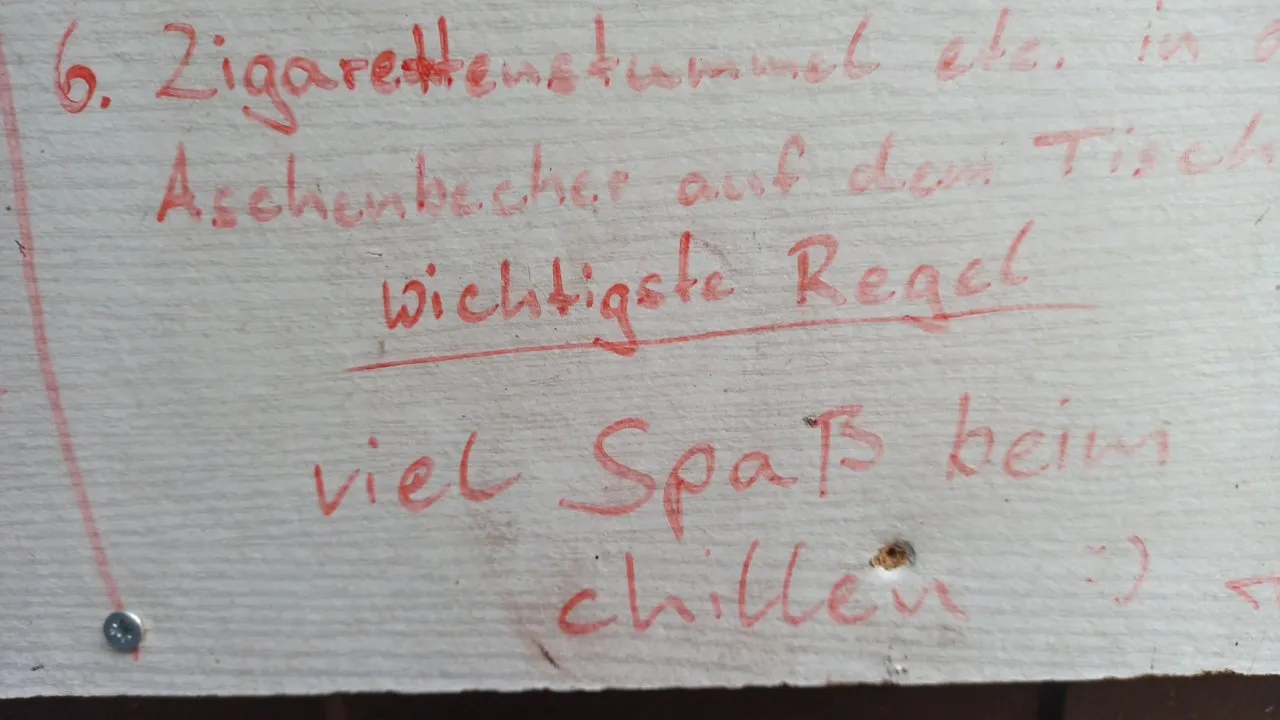 6. Zigarettenstummel etc. in
Aschenbecher auf dem Tisch
wichtigste Regel
viel Spaß beim
chillen :)